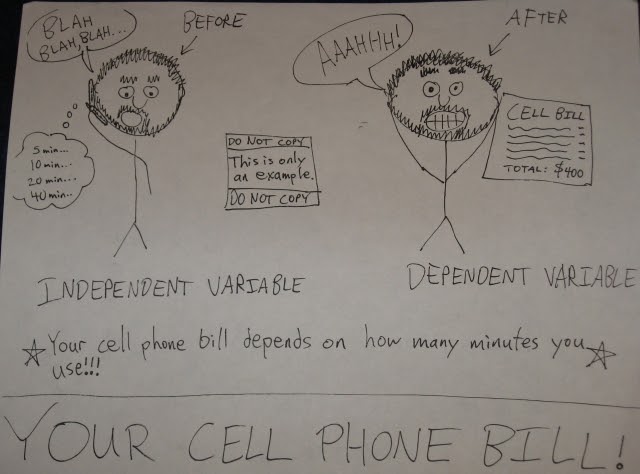 BLAH
BLAH, BLAH...
BEFORE
AFTER
AAAHHH!
5 min...
10 min...
20 min...
40 min..
DO NOT COPY
This is only
an example.
DO NOT COPY
CELL BILL
TOTAL: $400
INDEPENDENT VARIABLE
DEPENDENT VARIABLE
Your cell phone bill depends on how many minutes you
use!!!
YOUR CELL PHONE BILL!